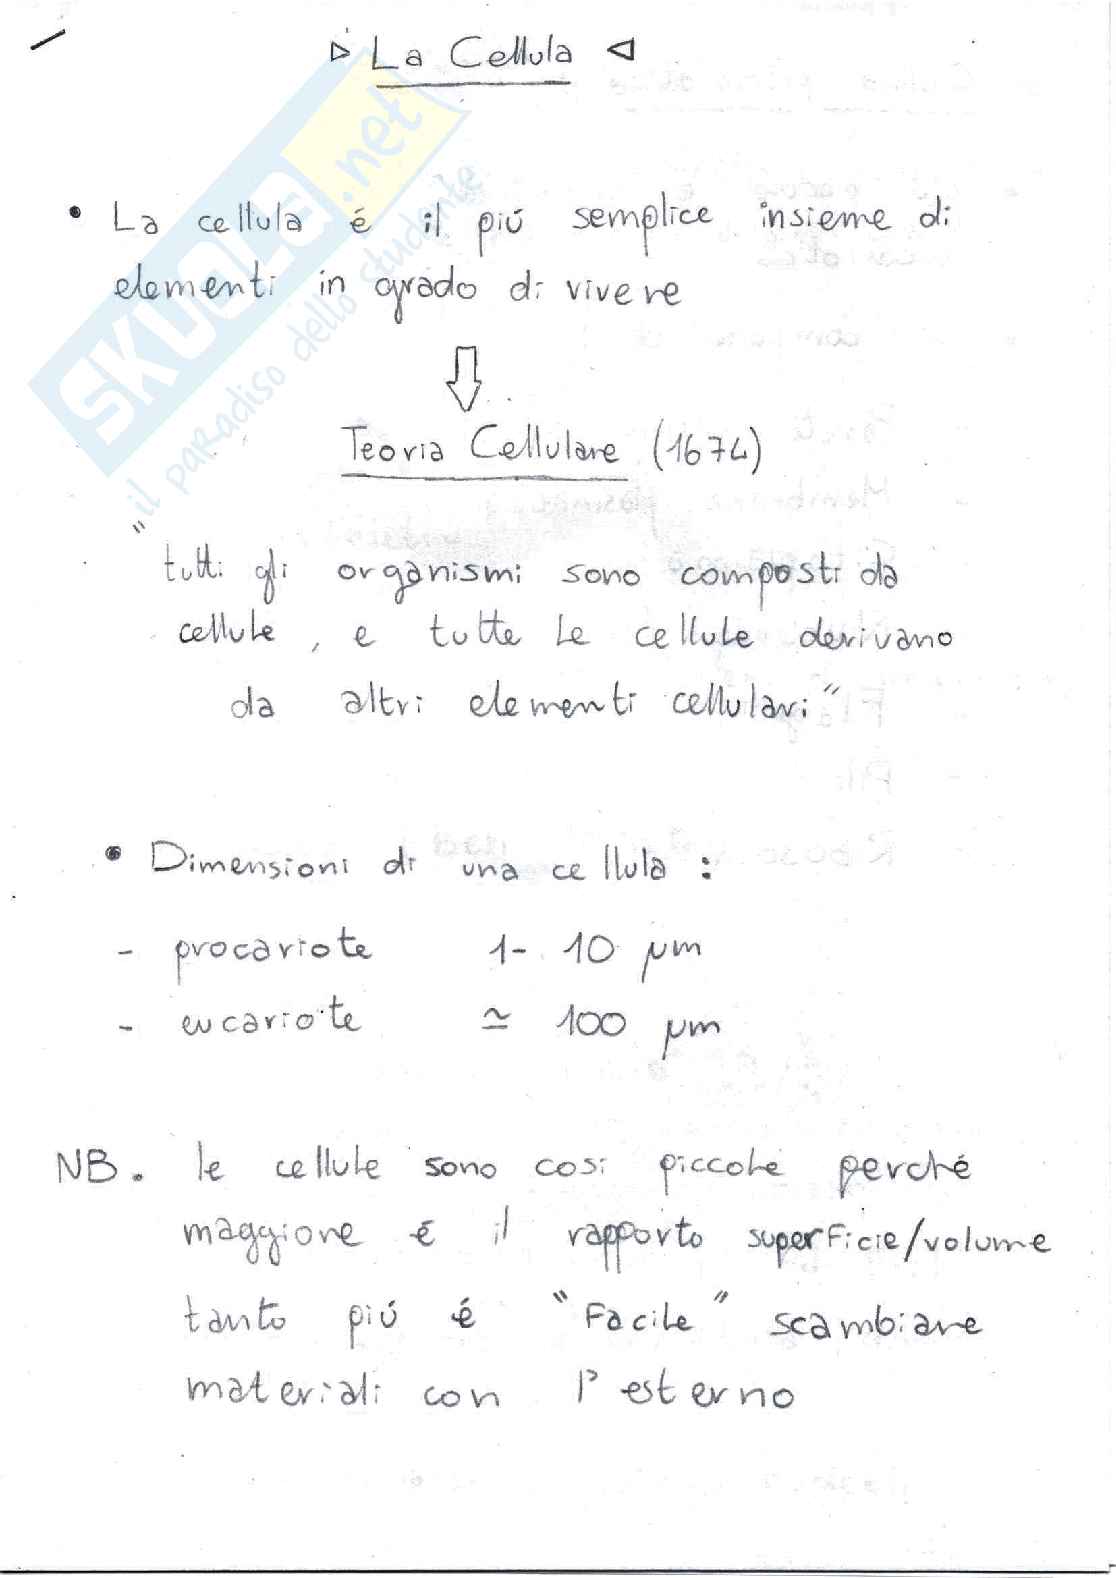 ▷ La Cellula ◁
SKUOLA.net
il paradiso dello studente
• La cellula é il piú semplice insieme di
elementi in grado di vivere
⇩
Teoria Cellulare (1674)
"tutti gli organismi sono composti da
cellule, e tutte le cellule derivano
da altri elementi cellulari"
• Dimensioni di una cellula :
- procariote 1- 10 µm
- eucariote ≃ 100 µm
NB. le cellule sono cosi piccole perché
maggiore é il rapporto superficie/volume
tanto piú é "Facile" scambiare
materiali con l' esterno